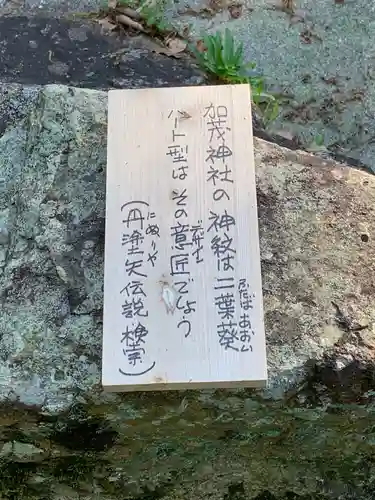 加茂神社の神紋は二葉葵
ふたばあおい
ハート型は その意匠でしょう
デザイン
(丹塗矢伝説 検索)
にぬりや